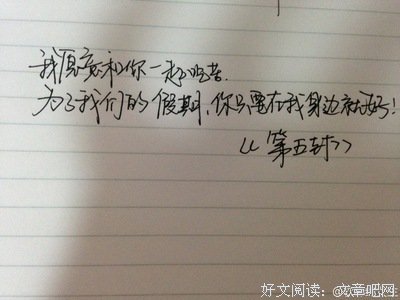 我愿意和你一起吃苦.
为了我们的假期,你只要在我身边就好!
《第五封》
好文阅读:@文章吧网